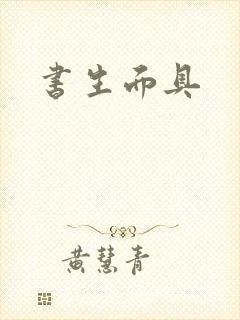 書生面具
黃慧青